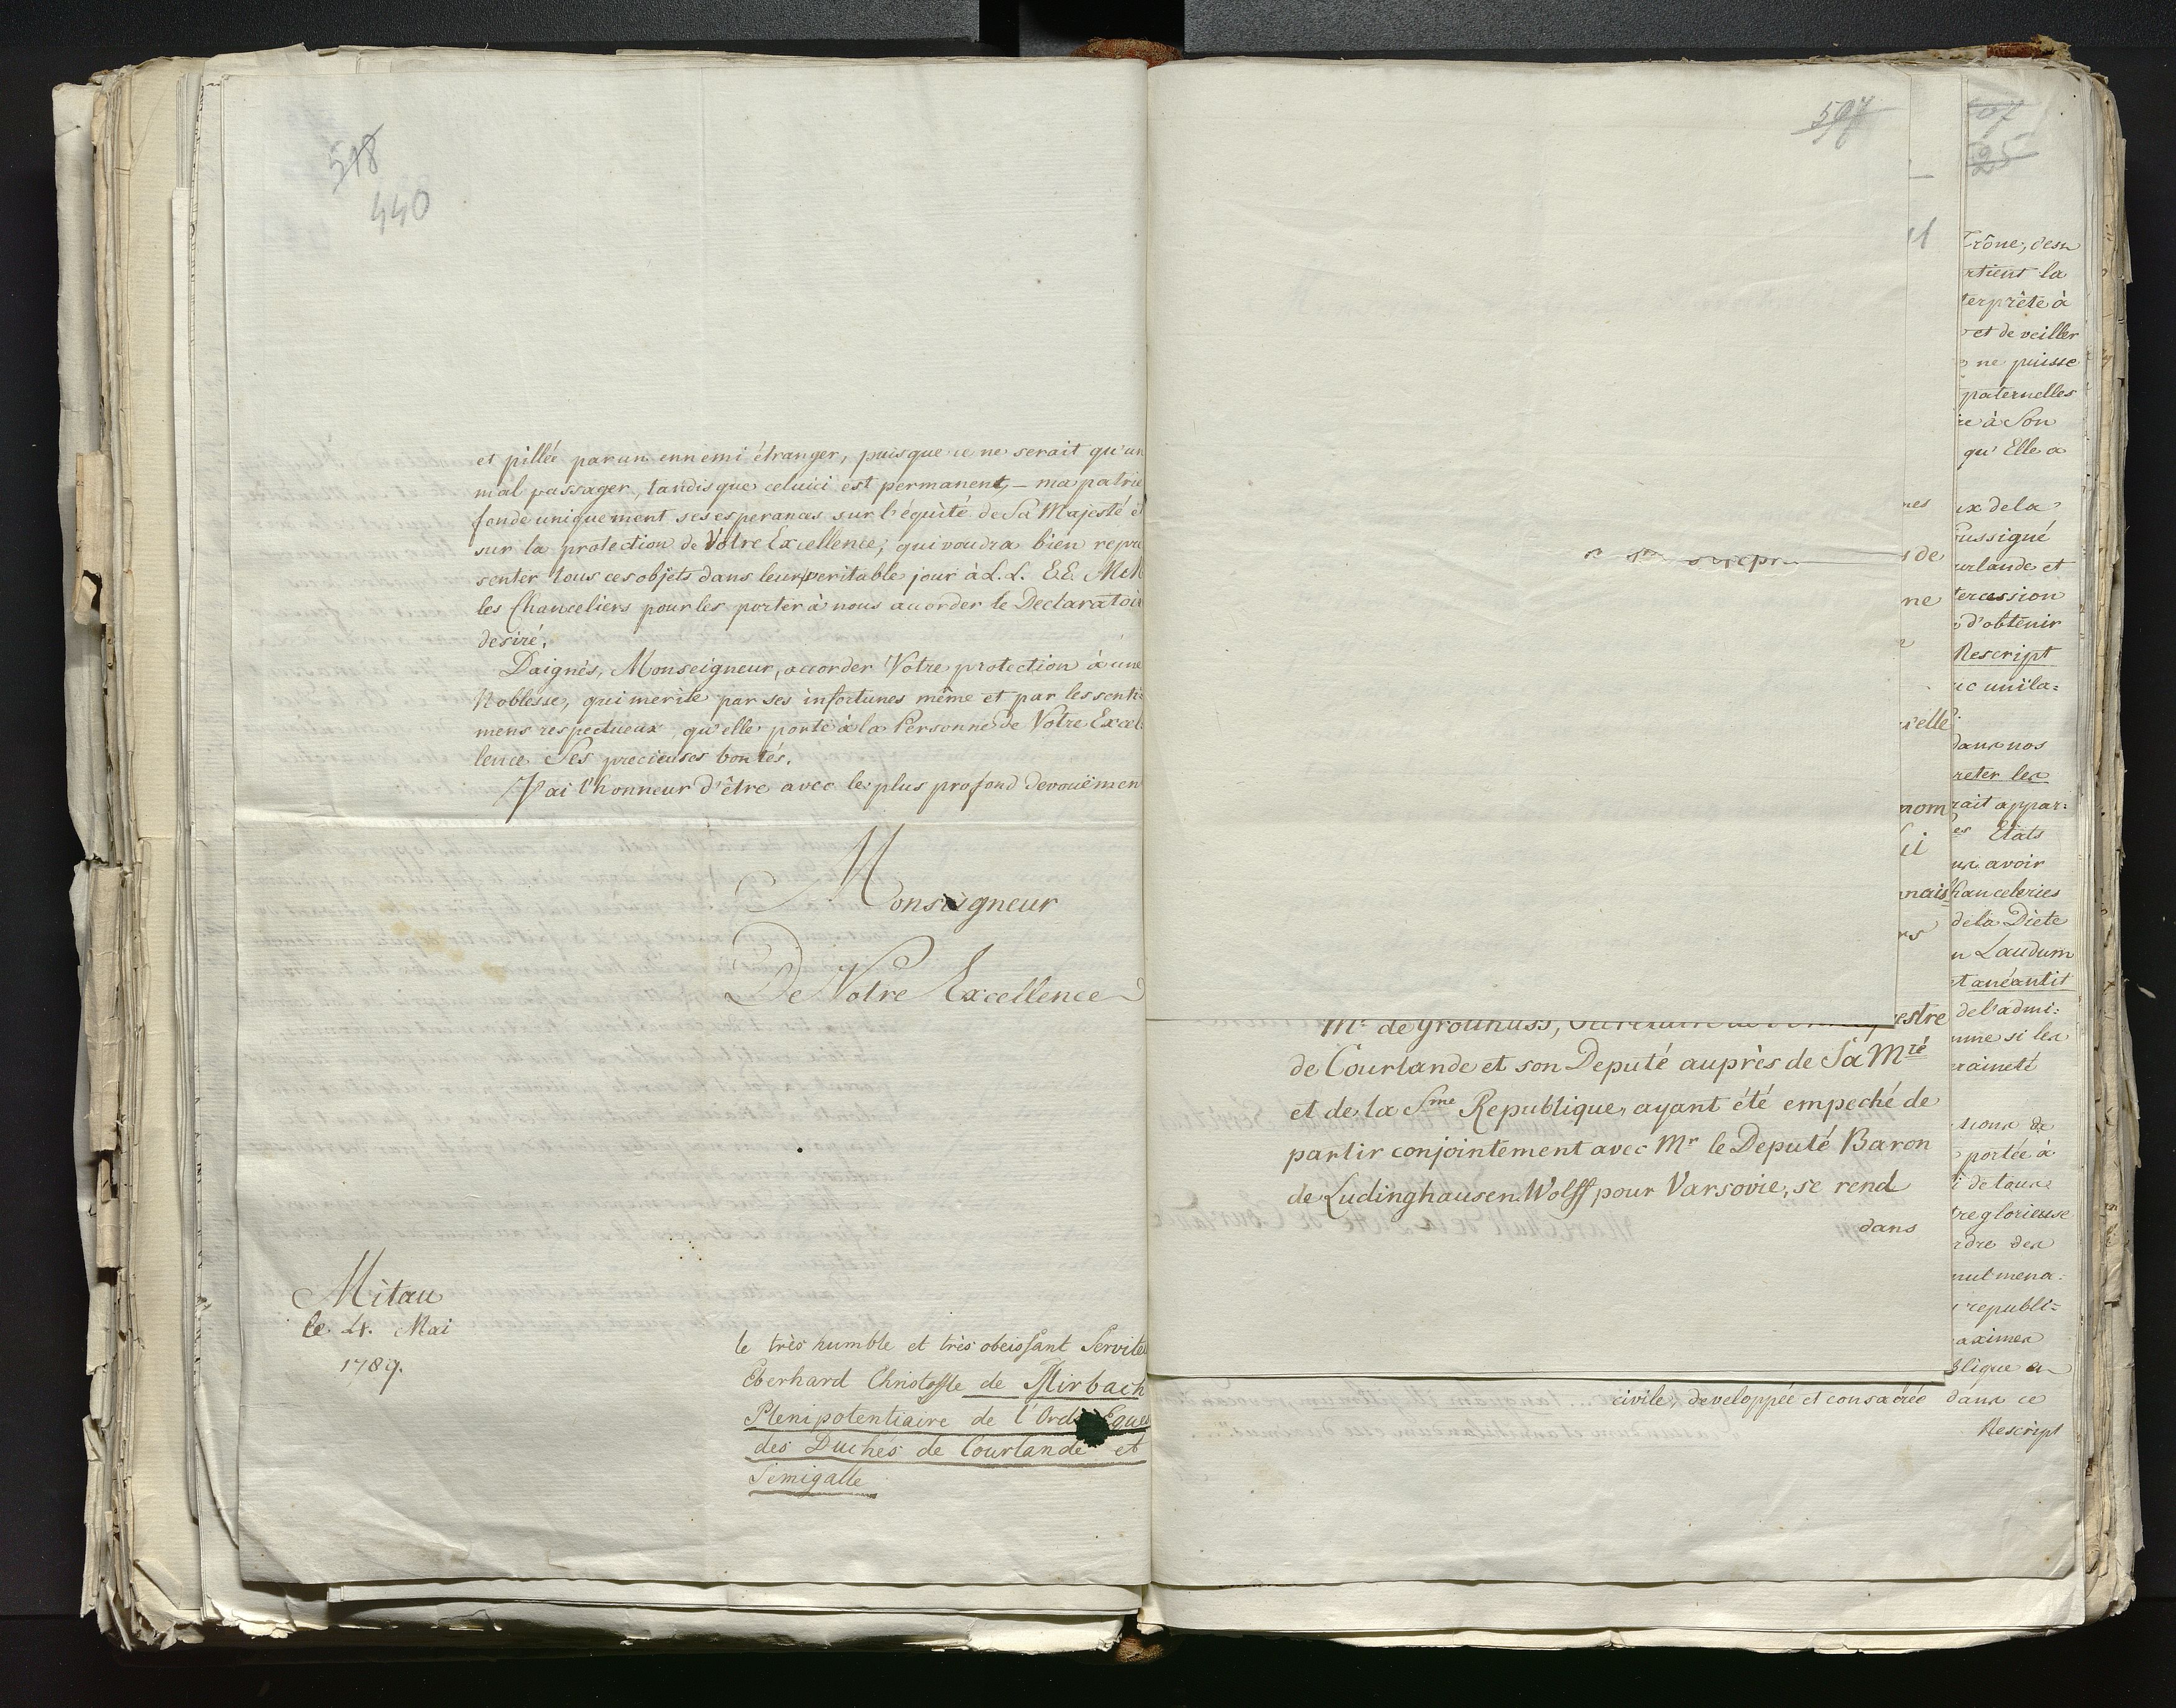 518
440
et pillée par un ennemi étranger, puisque ce ne serait qu'un
mal passager, tandis que celuici est permanent, – ma patrie
fonde uniquement ses esperances sur l'équité de Sa Majesté et
sur la protection de Votre Excellence, qui voudra bien repre
senter tous ces objets dans leur veritable jour à L. L. E.E. MM
les Chanceliers pour les porter à nous accorder le Declaratoir
desiré.
Daignés, Monseigneur, accorder Votre protection à une
Noblesse, qui merite par ses infortunes même et par les senti=
mens respectueux, qu'elle porte à la Personne de Votre Excel
lence Ses precieuses bontés.
J'ai l'honneur d'être avec le plus profond devouëmen
Monseigneur
De Votre Excellence
Mitau
le 4. Mai
1789.
le très humble et très obeissant Servite
Eberhard Christofle de Mirbach
Plenipotentiaire de l'Ord Eques
des Duchés de Courlande et
Semigalle
597
Mr de Grothuss,
estre
de Courlande et son Deputé auprès de Sa Mté
et de la Sme Republique, ayant été empeché de
partir conjointement avec Mr le Deputé Baron
de Ludinghausen Wolff pour Varsovie, se rend
dans
nes
de
ne
elle
nom
mais
07
25
Trône, desn
rtient la
terprète à
et de veiller
ne puisse
paternelles
re à Son
qu'Elle a
ux de la
oussigné
urlande et
tercession
d'obtenir
Rescript
ic unila=
dans nos
reter les
rait appar=
es Etats
ux avoir
hanceleries
de la Diete
u Laudum
t anéantit
de l'admi=
mme si les
raineté
sions de
portée à
i de tous
tre glorieuse
rdre des
nul mena=
republi=
aximes
blique en
civile, developpée et consacrée dans ce
Rescript